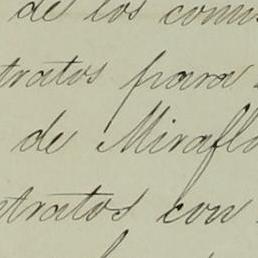 de los comis
tratos para
de Miraflo
tratos con